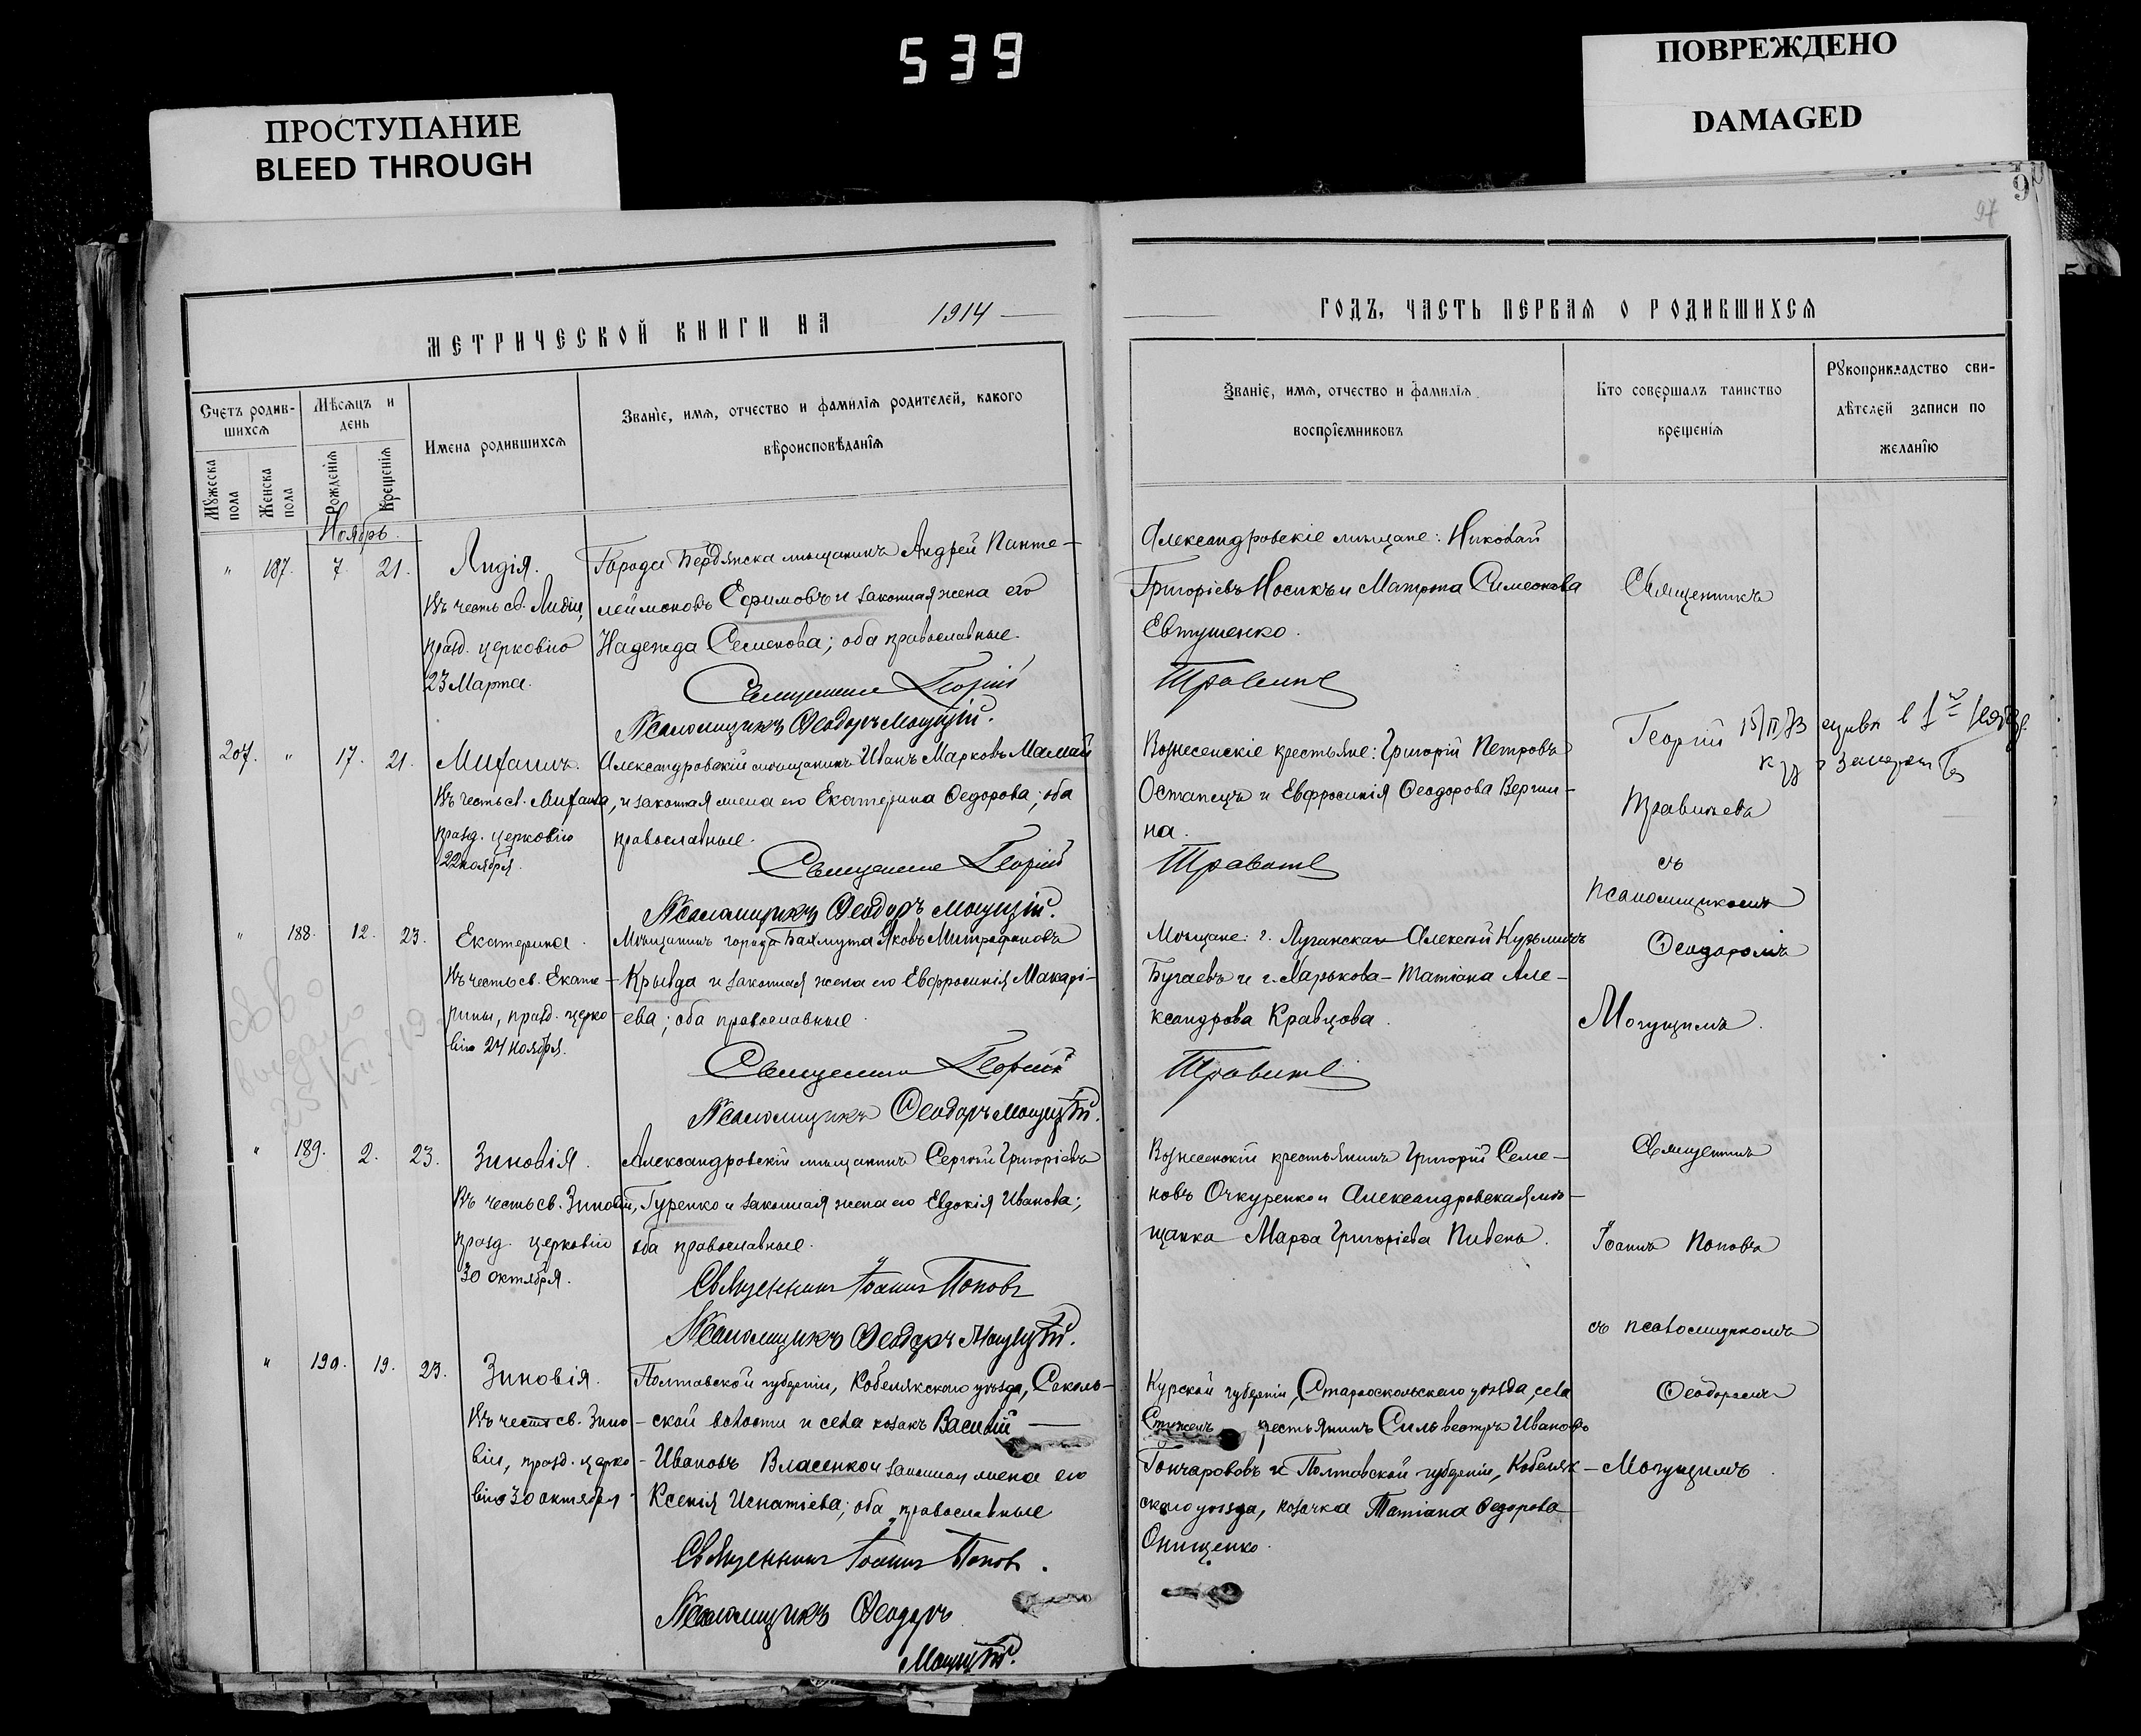 539
ПРОСТУПАНИЕ
BLEED THROUGH
ПОВРЕЖДЕНО
DAMAGED
97
МЕТРИЧЕСКОЙ КНИГИ НА 1914
ГОДЪ, ЧАСТЬ ПЕРВАЯ О РОДИВШИХСЯ
Счетъ родив-
шихся
Мужеска пола
Женска пола
Мѣсяцъ и
день
Рожденія
Крещенія
Имена родившихся
Званіе, имя, отчество и фамилія родителей, какого
вѣроисповѣданія
Званіе, имя, отчество и фамилія
воспріемниковъ
Кто совершалъ таинство
крещенія
Рукоприкладство сви-
дѣтелей записи по
желанію
Ноябрь.
" 187. 7. 21. Лидія.
Въ честь св. Лидіи,
празд. церковію
23 Марта.
Города Бердянска мѣщанинъ Андрей Панте-
леймоновъ Ефимовъ и законная жена его
Надежда Семенова; оба православные.
Священникъ Георгій
Псаломщикъ Ѳеодоръ Могущій.
Александровскіе мѣщане: Николай
Григоріевъ Носикъ и Матрона Симеонова
Евтушенко.
207. " 17. 21. Михаилъ.
Въ честь св. Михаила,
празд. церковію
22 ноября.
Александровскій мѣщанинъ Иванъ Марковъ Малый
и законная жена его Екатерина Ѳедорова; оба
православные.
Священникъ Георгій
Псаломщикъ Ѳеодоръ Могущій.
Вознесенскіе крестьяне: Григорій Петровъ
Остапецъ и Евфросинія Ѳеодорова Верши-
на.
" 188. 12. 23. Екатерина.
Въ честь св. Екате-
рины, празд. церко-
вію 24 ноября.
Мѣщанинъ города Бахмута Яковъ Митрофановъ
Крывда и законная жена его Евфросинія Макарі-
ева; оба православные.
Священникъ Георгій
Псаломщикъ Ѳеодоръ Могущій.
Мѣщане: г. Луганска Алексѣй Кузьмичъ
Бугаевъ и г. Харькова - Татіана Але-
ксандрова Кравцова.
" 189. 2. 23. Зиновія.
Въ честь св. Зиновіи,
празд. церковію
30 октября.
Александровскій мѣщанинъ Сергѣй Григоріевъ
Гуренко и законная жена его Евдокія Иванова;
оба православные.
Священникъ Іоаннъ Поповъ
Псаломщикъ Ѳеодоръ Могущій.
Вознесенскій крестьянинъ Григорій Семе-
новъ Очкуренко и Александровская мѣ-
щанка Марѳа Григоріева Пивень.
" 190. 19. 23. Зиновія.
Въ честь св. Зино-
віи, празд. церко-
вію 30 октября
Полтавской губерніи, Кобелякскаго уѣзда, Соколь-
ской волости и села козакъ Василій
Ивановъ Власенко и законная жена его
Ксенія Игнатіева; оба православные
Священникъ Іоаннъ Поповъ.
Псаломщикъ Ѳеодоръ
Могущій.
Курской губерніи, Старооскольскаго уѣзда, села
крестьянинъ Сильвестръ Ивановъ
Гончарововъ и Полтавской губерніи, Кобеляк-
скаго уѣзда, козачка Татіана Ѳедорова
Онищенко.
Священникъ
Георгій
съ
псаломщикомъ
Ѳеодоромъ
Могущимъ.
Священникъ
Іоаннъ Поповъ
съ псаломщикомъ
Ѳеодоромъ
Могущимъ.